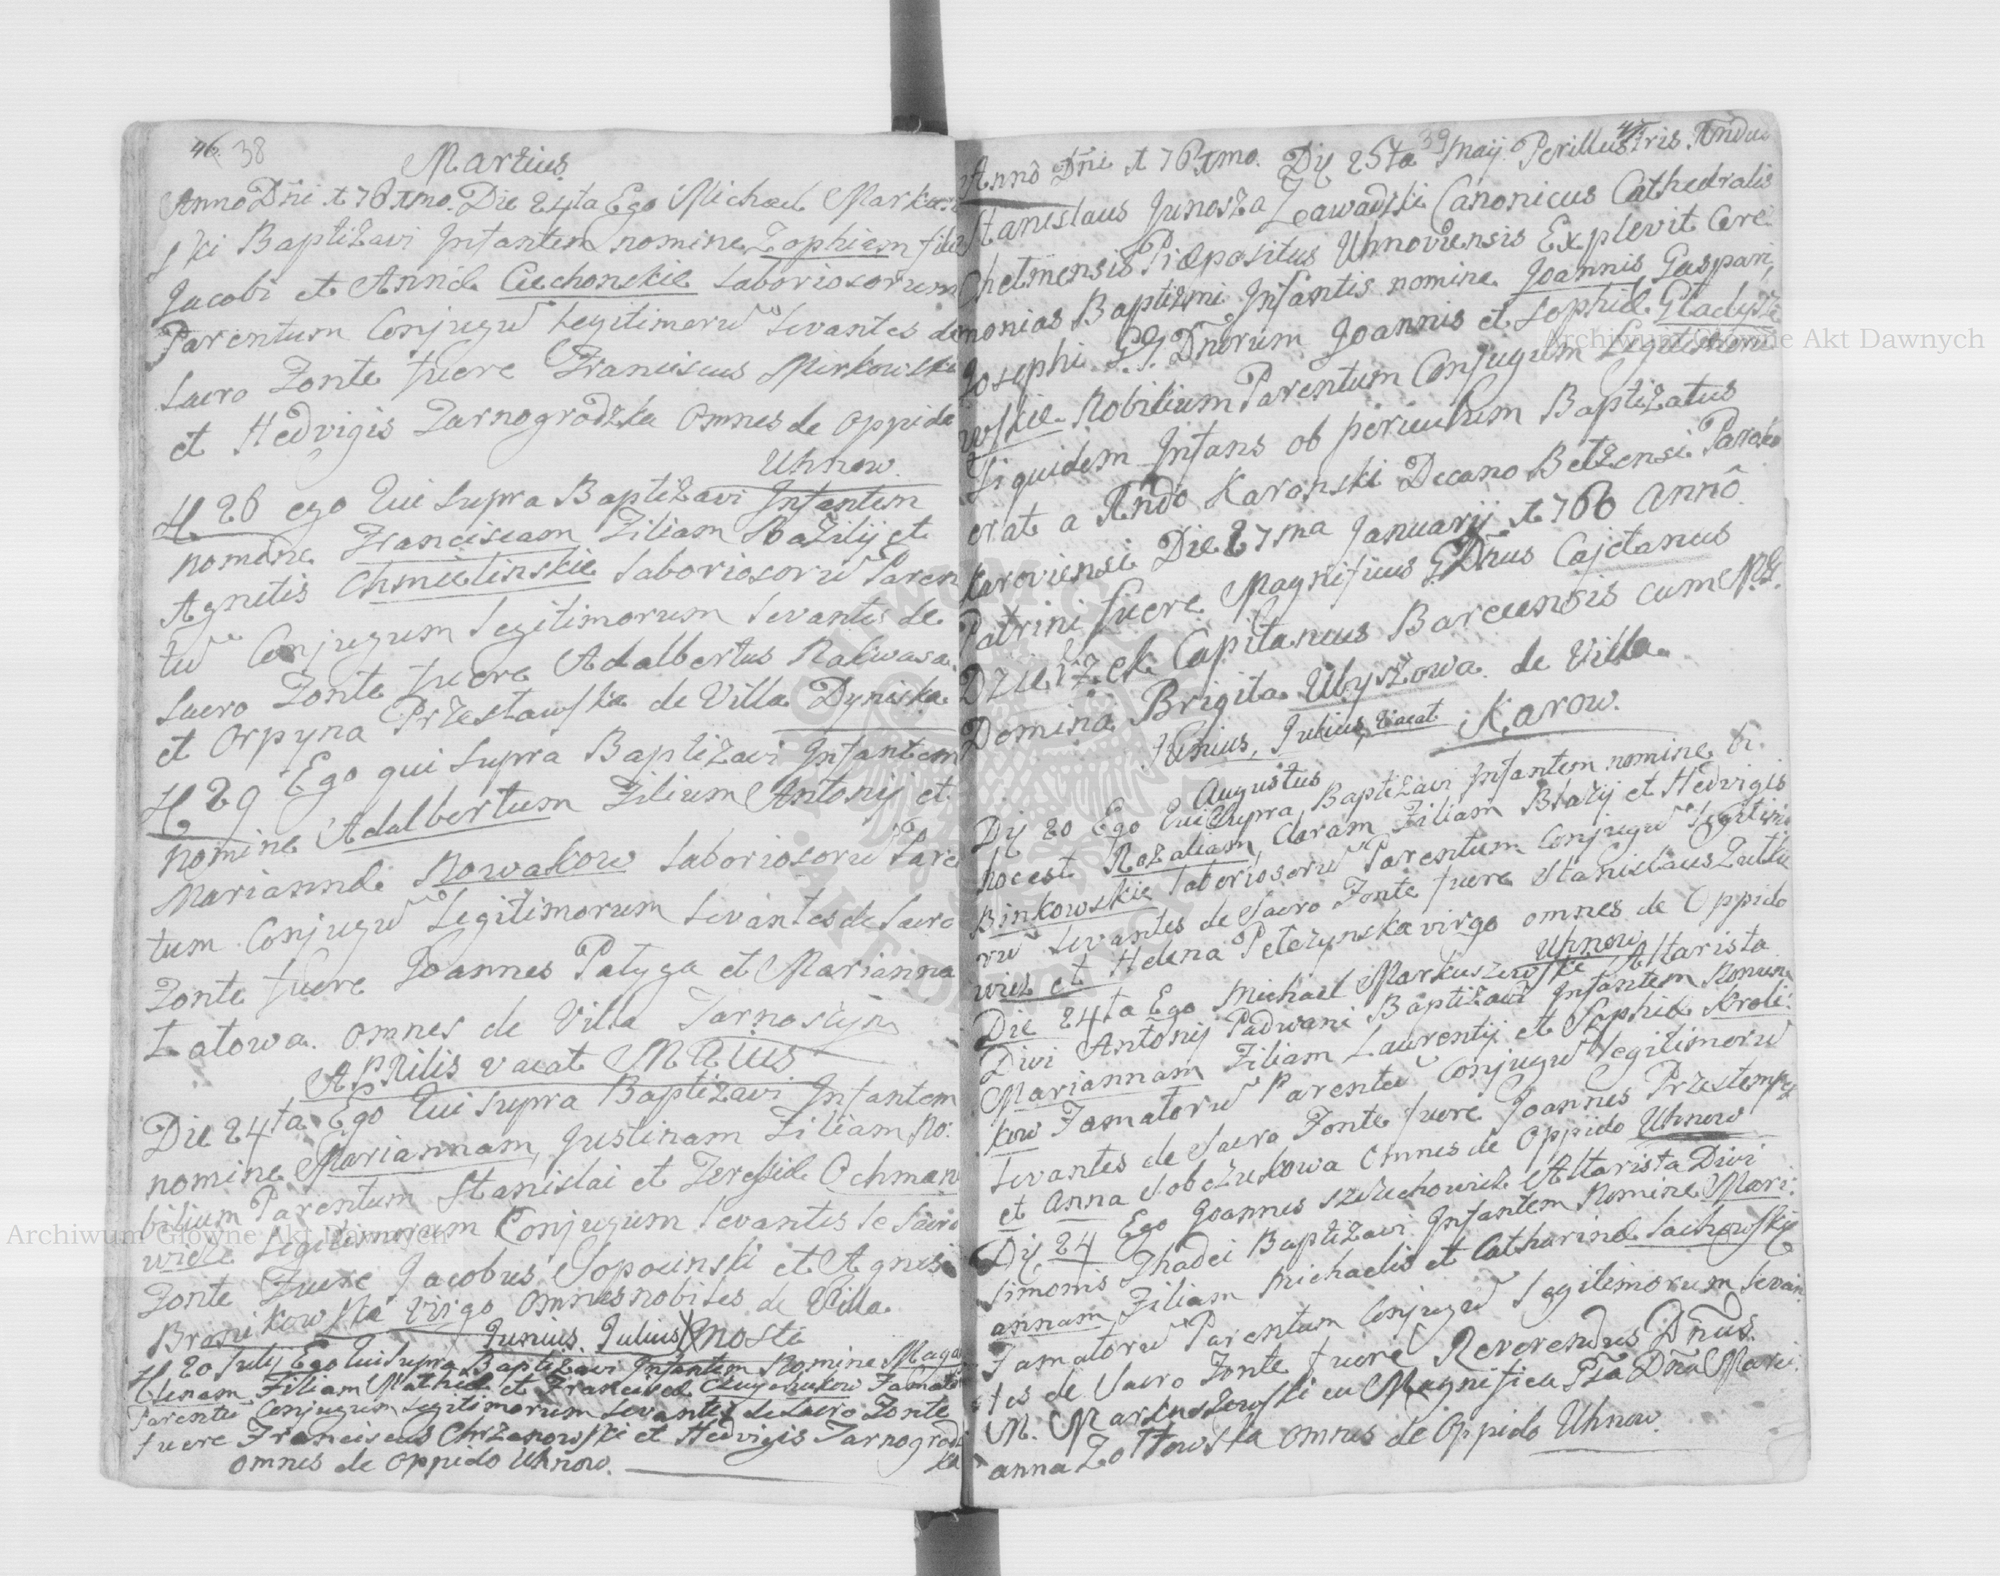 46. 38
Martius.
Anno Dñi 1761mo. Die 24ta Ego Michael Markusze
ski Baptizavi Infantem nomine Zophiam filia
Jacobi et Annæ Ciechonskie Laboriosorum
Parentum Conjugũ Legitimorũ Levantes de
Sacro Fonte fuere Franciscus Mirkowski
et Hedvigis Tarnogrodzka omnes de oppido
Uhnow.
H 26 ego Qui Supra Baptizavi Infantem
nomine Franciscam Filiam Bazilij et
Agnetis Chmielinskie Laboriosorũ Paren
tũ Conjugum Legitimorum Levantes de
Sacro Fonte fuere Adalbertus Naliwasa
et Orpyna Przestawska de Villa Dyniska
H 29 Ego qui Supra Baptizavi Infantem
nomine Adalbertum Filium Antonij et
Mariannæ Nowakow Laboriosorũ Pare
tum Conjugũ Legitimorum Levantes de Sacro
Fonte fuere Joannes Patyga et Marianna
Łatowa omnes de Villa Tarnoszyn
APRilis vacat MAius
Die 24ta Ego Qui Supra Baptizavi Infantem
nomine Mariannam, Justinam Filiam No:
bilium Parentum Stanislai et Teressiæ Ochman
wicze Legitimorum Conjugum Levantes de Sacro
Fonte Fuere Jacobus Sopocinski et Agnes
Bronikowska virgo omnes nobiles de Villa
Junius. Julius Moste
H 20 Julij Ego Qui Supra Baptizavi Infantem Nomine Maga
lenam Filiam Mathiæ et Franciscæ Famato
Parentũ Conjugum Legitimorum Levantes de Sacro Fonte
fuere Franciscus Chrzanowski et Hedvigis Tarnogrodz
ka
omnes de Oppido Uhnow.
39 47
Anno Dñi 1761mo. Dij 25ta Maij Perillustris Rndus
Stanislaus Junosza Zawadski Canonicus Cathedralis
Chelmensis Præpositus Uhnoviensis Explevit Cere
monias Baptizmi Infantis nomine Joannis Gaspari,
Josephi G.G. Dñorum Joannis et Sophiæ Gładysze
wskie Nobilium Parentum Conjugum Legitimoru
Siquidem Infans ob periculum Baptizatus
erat a Rndo Karonski Decano Betzensi Parocho
Karoviensi Die 27ma Januarij 1760 Anno
Patrini fuere Magnificus G. Dñus Cajetanus
Dzierżek Capitaneus Barcensis cum M.G.
Domina Brigita Ubyszowa de Villa
Junius, Julius, vacat Karow.
Augustus
Dij 20 Ego Qui Supra Baptizavi Infantem nomine B:
hocest Rozaliam, Claram Filiam Blazij et Hedvigis
Binkowskie Laboriosorũ Parentum Conjugũ Legitimo
rũ Levantes de Sacro Fonte fuere Stanislaus Zatka
wicz et Helena Pelczynska virgo omnes de Oppido
Uhnow
Die 24ta Ego Michael Markuszewski Altarista
Divi Antonij Padwani Baptizavi Infantem Nomine
Mariannam Filiam Laurentij et Sophiæ Kroli:
kow Famatorũ Parentũ Conjugũ Legitimorũ
Levantes de Sacro Fonte fuere Joannes Przestempsk
et Anna Sobczukowa Omnes de Oppido Uhnow
Dij 24 Ego Joannes Szelechowicz Altarista Divi
Simonis Thadei Baptizavi Infantem Nomine Mari:
annam Filiam Michaelis et Catharinæ Lachowskie
Famatorũ Parentum Conjugũ Legitimorum Levan
tes de Sacro Fonte fuere Reverendus Dñus.
M. Markuszewski cu Magnifica Dña Mari:
anna Zołtowska omnes de Oppido Uhnow.
Archiwum Główne Akt Dawnych
Archiwum Główne Akt Dawnych
ARCHIWUM GŁÓWNE AKT DAWNYCH